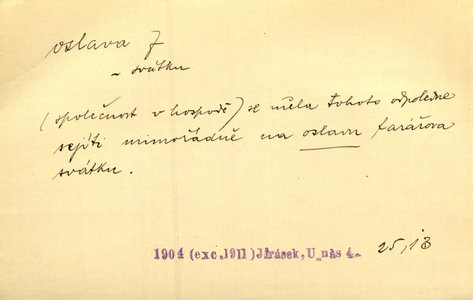 oslava f
~ svátku
(společnost v hospodě) se měla tohoto odpoledne
sejíti mimořádně na oslavu farářova
svátku.
1904 (exc. 1911) Jirásek, U nás 4.
25, 13